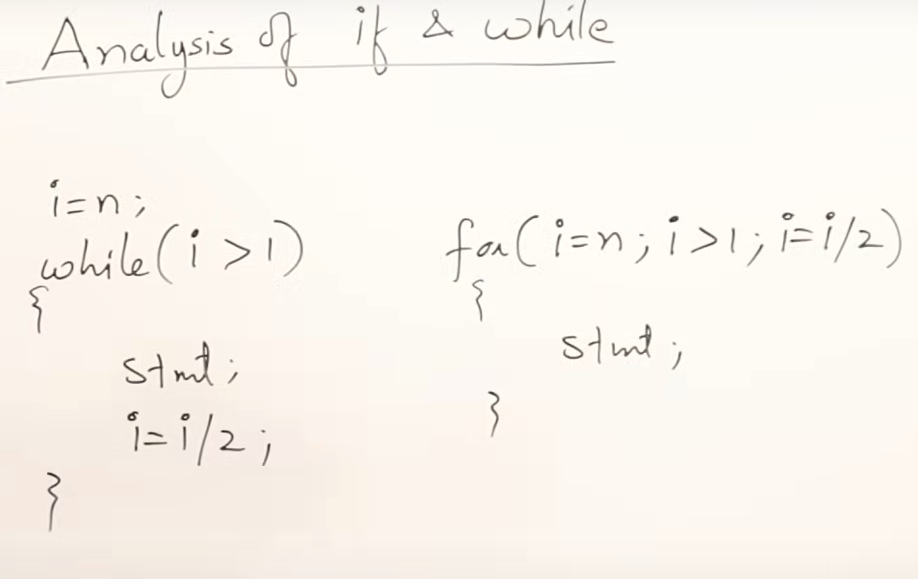 Analysis of if & while
i=n;
while(i>1)
{
stmt;
i=i/2;
}
for(i=n;i>1;i=i/2)
{
stmt;
}